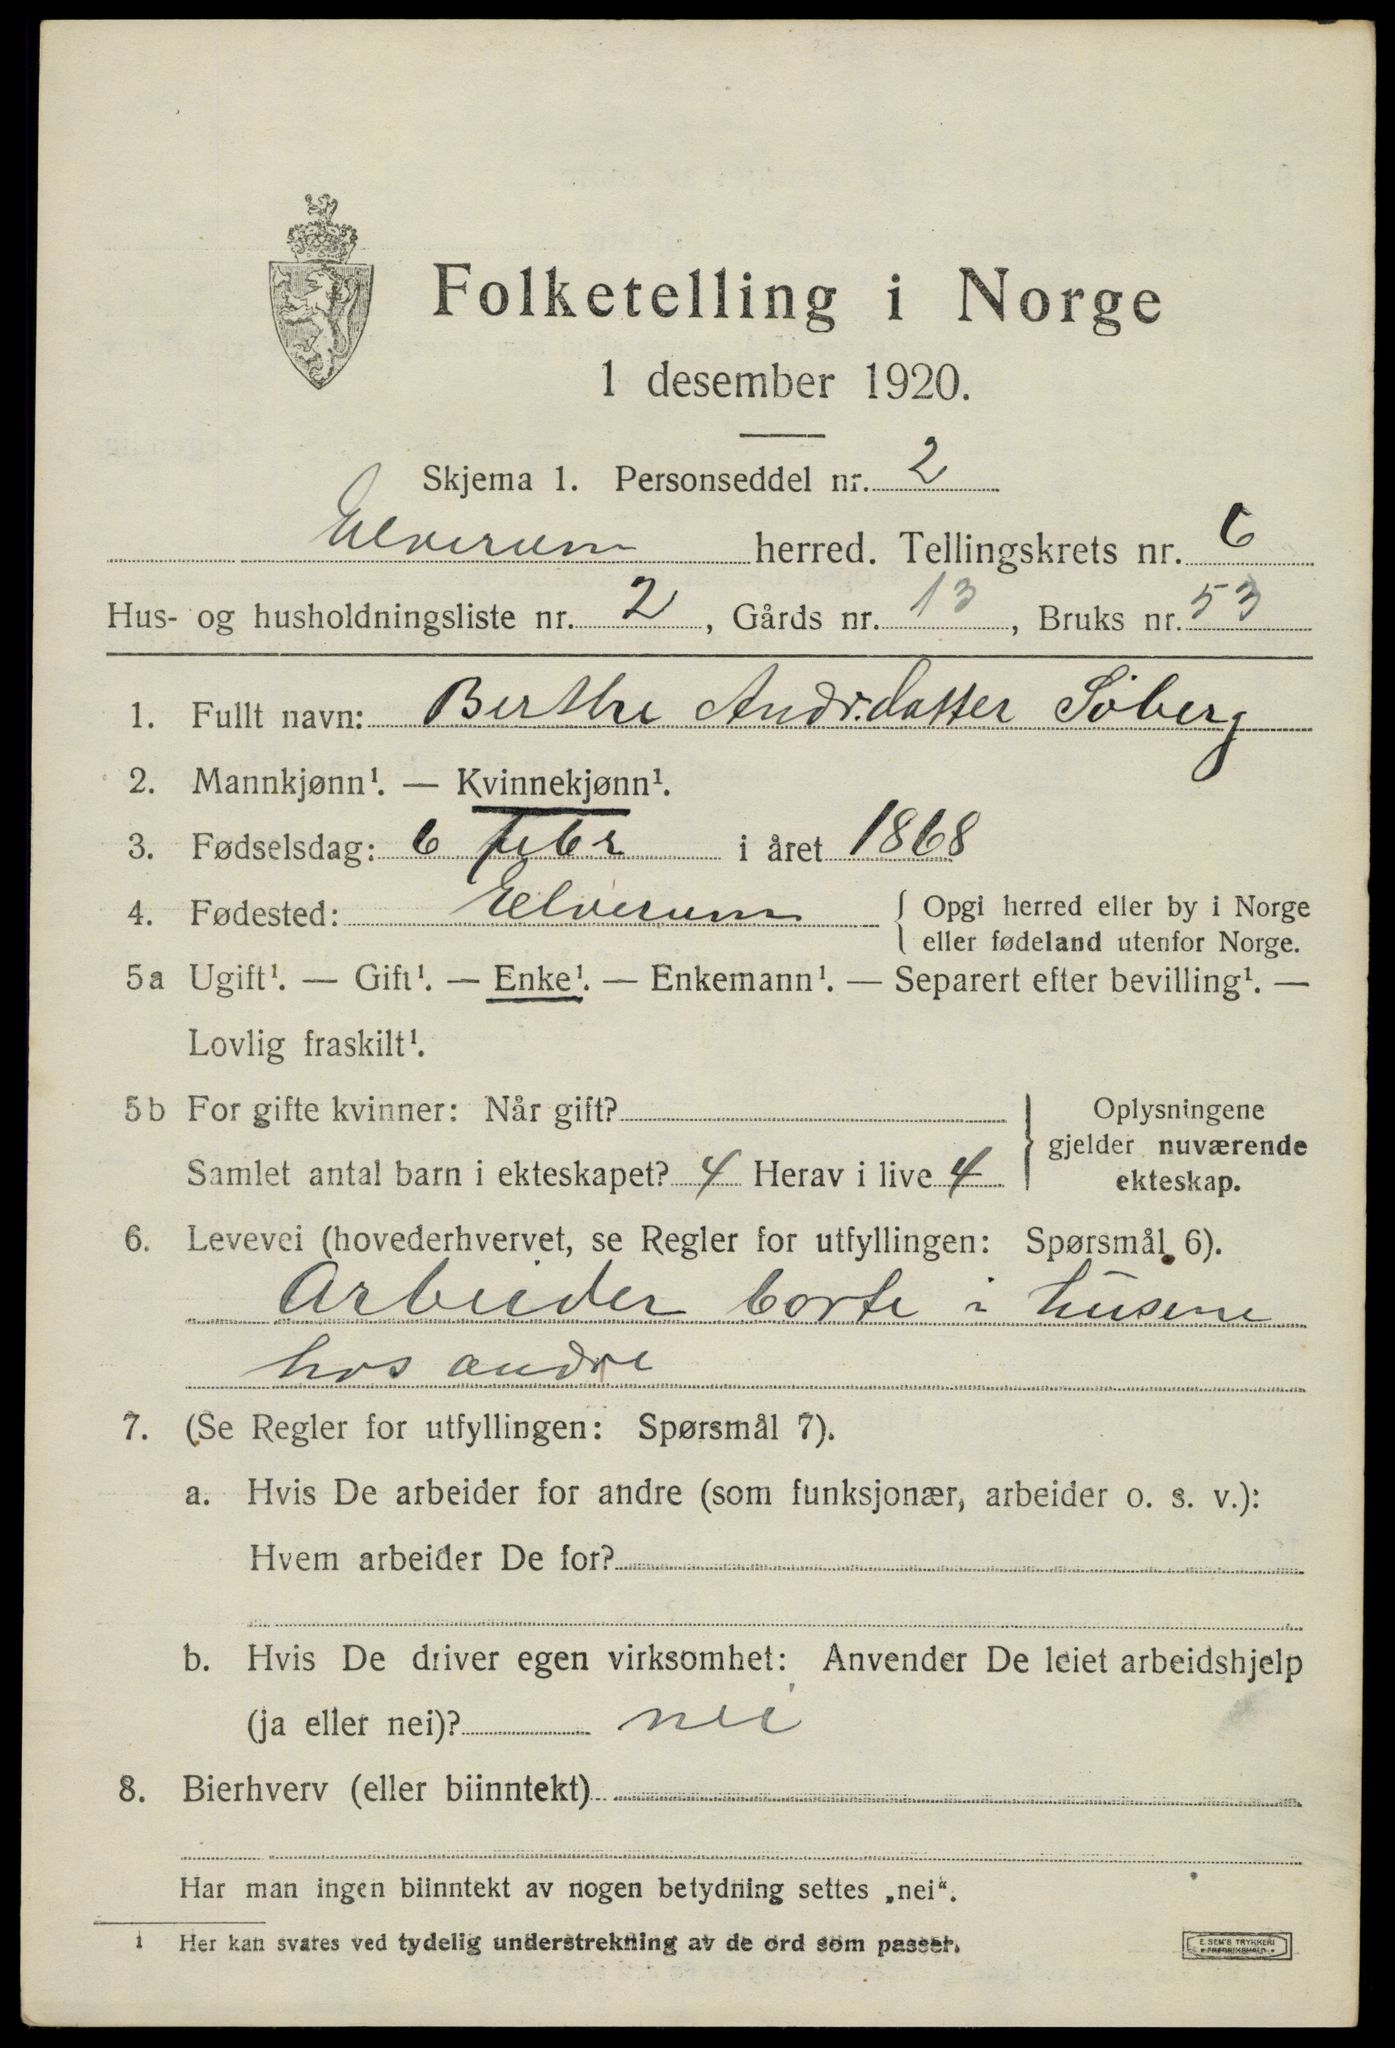 Folketelling i Norge
1 desember 1920.
Skjema 1. Personseddel nr. 2
Elverum herred. Tellingskrets nr. 6
Hus- og husholdningsliste nr. 2, Gårds nr. 13, Bruks nr. 53
1. Fullt navn: Berthe Andr.datter Søberg
2. Mannkjønn¹. — Kvinnekjønn¹.
3. Fødselsdag: 6 febr i året 1868
4. Fødested: Elverum { Opgi herred eller by i Norge
eller fødeland utenfor Norge.
5a Ugift¹. — Gift¹. — Enke¹. — Enkemann¹. — Separert efter bevilling¹. —
Lovlig fraskilt¹.
5b For gifte kvinner: Når gift? } Oplysningene
gjelder nuværende
Samlet antal barn i ekteskapet? 4 Herav i live 4 ekteskap.
6. Levevei (hovederhvervet, se Regler for utfyllingen: Spørsmål 6).
Arbeider borte i husene
hos andre
7. (Se Regler for utfyllingen: Spørsmål 7).
a. Hvis De arbeider for andre (som funksjonær, arbeider o. s. v.):
Hvem arbeider De for?
b. Hvis De driver egen virksomhet: Anvender De leiet arbeidshjelp
(ja eller nei)? nei
8. Bierhverv (eller biinntekt)
Har man ingen biinntekt av nogen betydning settes „nei“.
1 Her kan svares ved tydelig understrekning av de ord som passer.
E. SEM'S TRYKKERI
• FREDRIKSHALD •